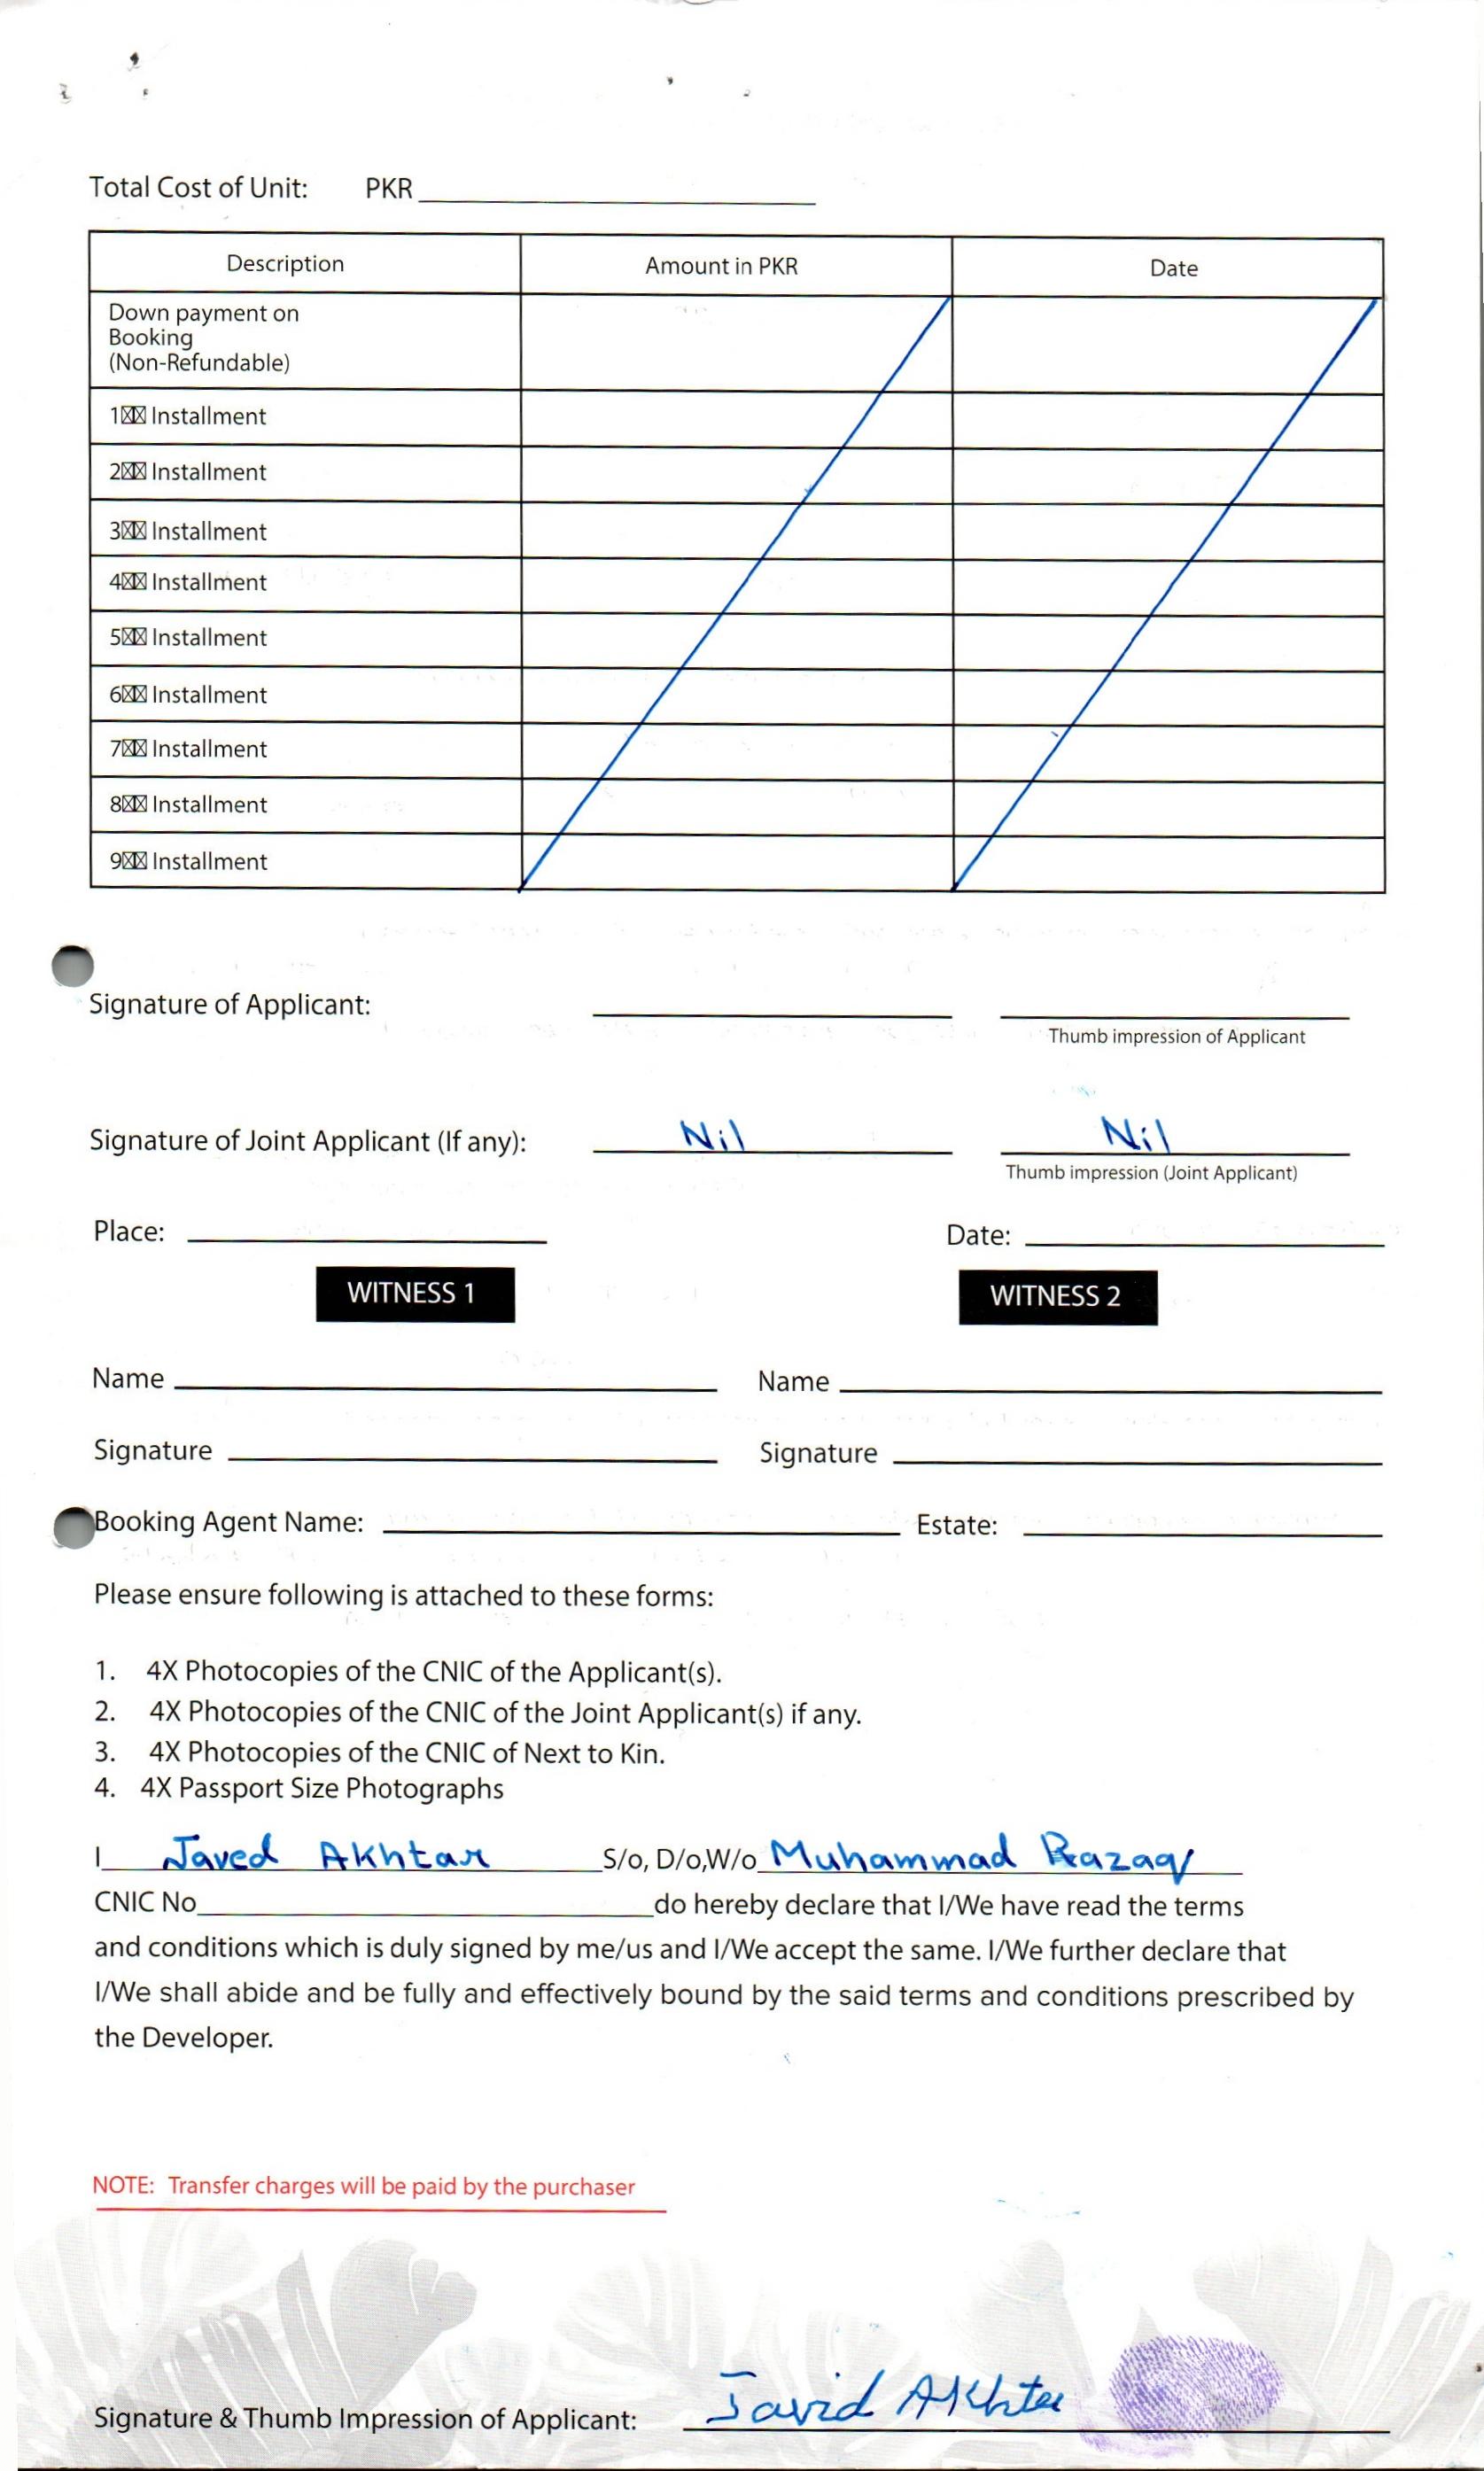 Total Cost of Unit: PKR
Description Amount in PKR Date
Down payment on
Booking
(Non-Refundable)
1☒☒ Installment
2☒☒ Installment
3☒☒ Installment
4☒☒ Installment
5☒☒ Installment
6☒☒ Installment
7☒☒ Installment
8☒☒ Installment
9☒☒ Installment
Signature of Applicant:
Thumb impression of Applicant
Signature of Joint Applicant (If any): Nil Nil
Thumb impression (Joint Applicant)
Place: Date:
WITNESS 1 WITNESS 2
Name Name
Signature Signature
Booking Agent Name: Estate:
Please ensure following is attached to these forms:
1. 4X Photocopies of the CNIC of the Applicant(s).
2. 4X Photocopies of the CNIC of the Joint Applicant(s) if any.
3. 4X Photocopies of the CNIC of Next to Kin.
4. 4X Passport Size Photographs
I Javed Akhtar S/o, D/o,W/o Muhammad Razaq
CNIC No do hereby declare that I/We have read the terms
and conditions which is duly signed by me/us and I/We accept the same. I/We further declare that
I/We shall abide and be fully and effectively bound by the said terms and conditions prescribed by
the Developer.
NOTE: Transfer charges will be paid by the purchaser
Signature & Thumb Impression of Applicant: Javid Akhter